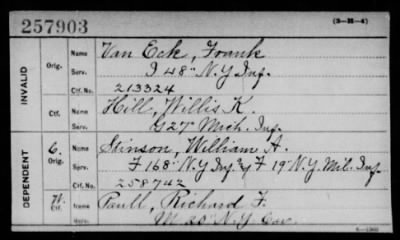 257903
(3-25-4)
INVALID
Orig. Name Van Eck, Frank
Serv. I 48" N.Y. Inf.
Ctf. No. 213324
Ctf. Name Hill, Willis K.
Serv. G 27 Mich. Inf.
DEPENDENT
C. Orig. Name Stinson, William A.
Serv. F 168" N.Y. Inf. & F 19" N.Y. Mil. Inf.
Ctf. No. 258742
W. Ctf. Name Paull, Richard F.
Serv. M 20" N.Y. Cav.